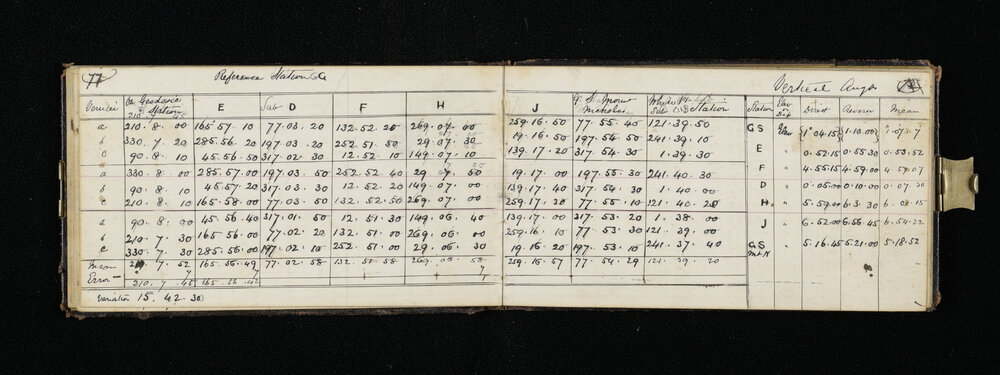 77 Reference Station G
Vernier Geodesic Station E Sub D F H
a 210 . 8 . 00 165 . 57 . 10 77 . 03 . 20 132 . 52 . 20 269 . 07 . 00
b 330 . 7 . 20 285 . 56 . 20 197 . 03 . 20 252 . 51 . 50 29 . 07 . 30
c 90 . 8 . 10 45 . 56 . 50 317 . 02 . 30 12 . 52 . 10 149 . 07 . 10
a 330 . 8 . 00 285 . 57 . 00 197 . 03 . 50 252 . 52 . 40 29 . 7 . 50
b 90 . 8 . 10 45 . 57 . 20 317 . 03 . 30 12 . 52 . 20 149 . 07 . 00
c 210 . 8 . 10 165 . 58 . 00 77 . 03 . 50 132 . 52 . 50 269 . 07 . 00
a 90 . 8 . 00 45 . 56 . 40 317 . 01 . 50 12 . 51 . 30 149 . 06 . 40
b 210 . 7 . 30 165 . 56 . 00 77 . 02 . 20 132 . 51 . 00 269 . 06 . 00
c 330 . 7 . 30 285 . 56 . 00 197 . 02 . 10 252 . 51 . 00 29 . 06 . 30
Mean 210 . 7 . 52 165 . 56 . 49 77 . 02 . 58 132 . 51 . 58 269 . 06 . 58
Error
210 . 7 . 45 165 . 56 . 42
Variation 15 . 42 . 30
Vertical Ang
J G. S. Mount Nicholas Station
Station Direct Reverse Mean
259 . 16 . 50 77 . 55 . 40 121 . 39 . 50
19 . 16 . 50 197 . 54 . 50 241 . 39 . 10
139 . 17 . 20 317 . 54 . 30 1 . 39 . 30
19 . 17 . 00 197 . 55 . 30 241 . 40 . 30
139 . 17 . 40 317 . 54 . 30 1 . 40 . 00
259 . 17 . 20 77 . 55 . 10 121 . 40 . 20
139 . 17 . 00 317 . 53 . 20 1 . 38 . 00
259 . 16 . 10 77 . 53 . 30 121 . 39 . 00
19 . 16 . 20 197 . 53 . 10 241 . 37 . 40
259 . 16 . 57 77 . 54 . 29 121 . 39 . 20
GS 1° 04 . 15 1 . 10 . 00 1 . 07 . 7
E 0 . 52 . 15 0 . 55 . 30 0 . 53 . 52
F 4 . 55 . 15 4 . 59 . 00 4 . 57 . 07
D 0 . 05 . 00 0 . 10 . 00 0 . 07 . 30
H 5 . 59 . 00 6 . 3 . 30 6 . 08 . 15
J 6 . 52 . 00 6 . 56 . 45 6 . 54 . 22
GS Mt N 5 . 16 . 45 5 . 21 . 00 5 . 18 . 52